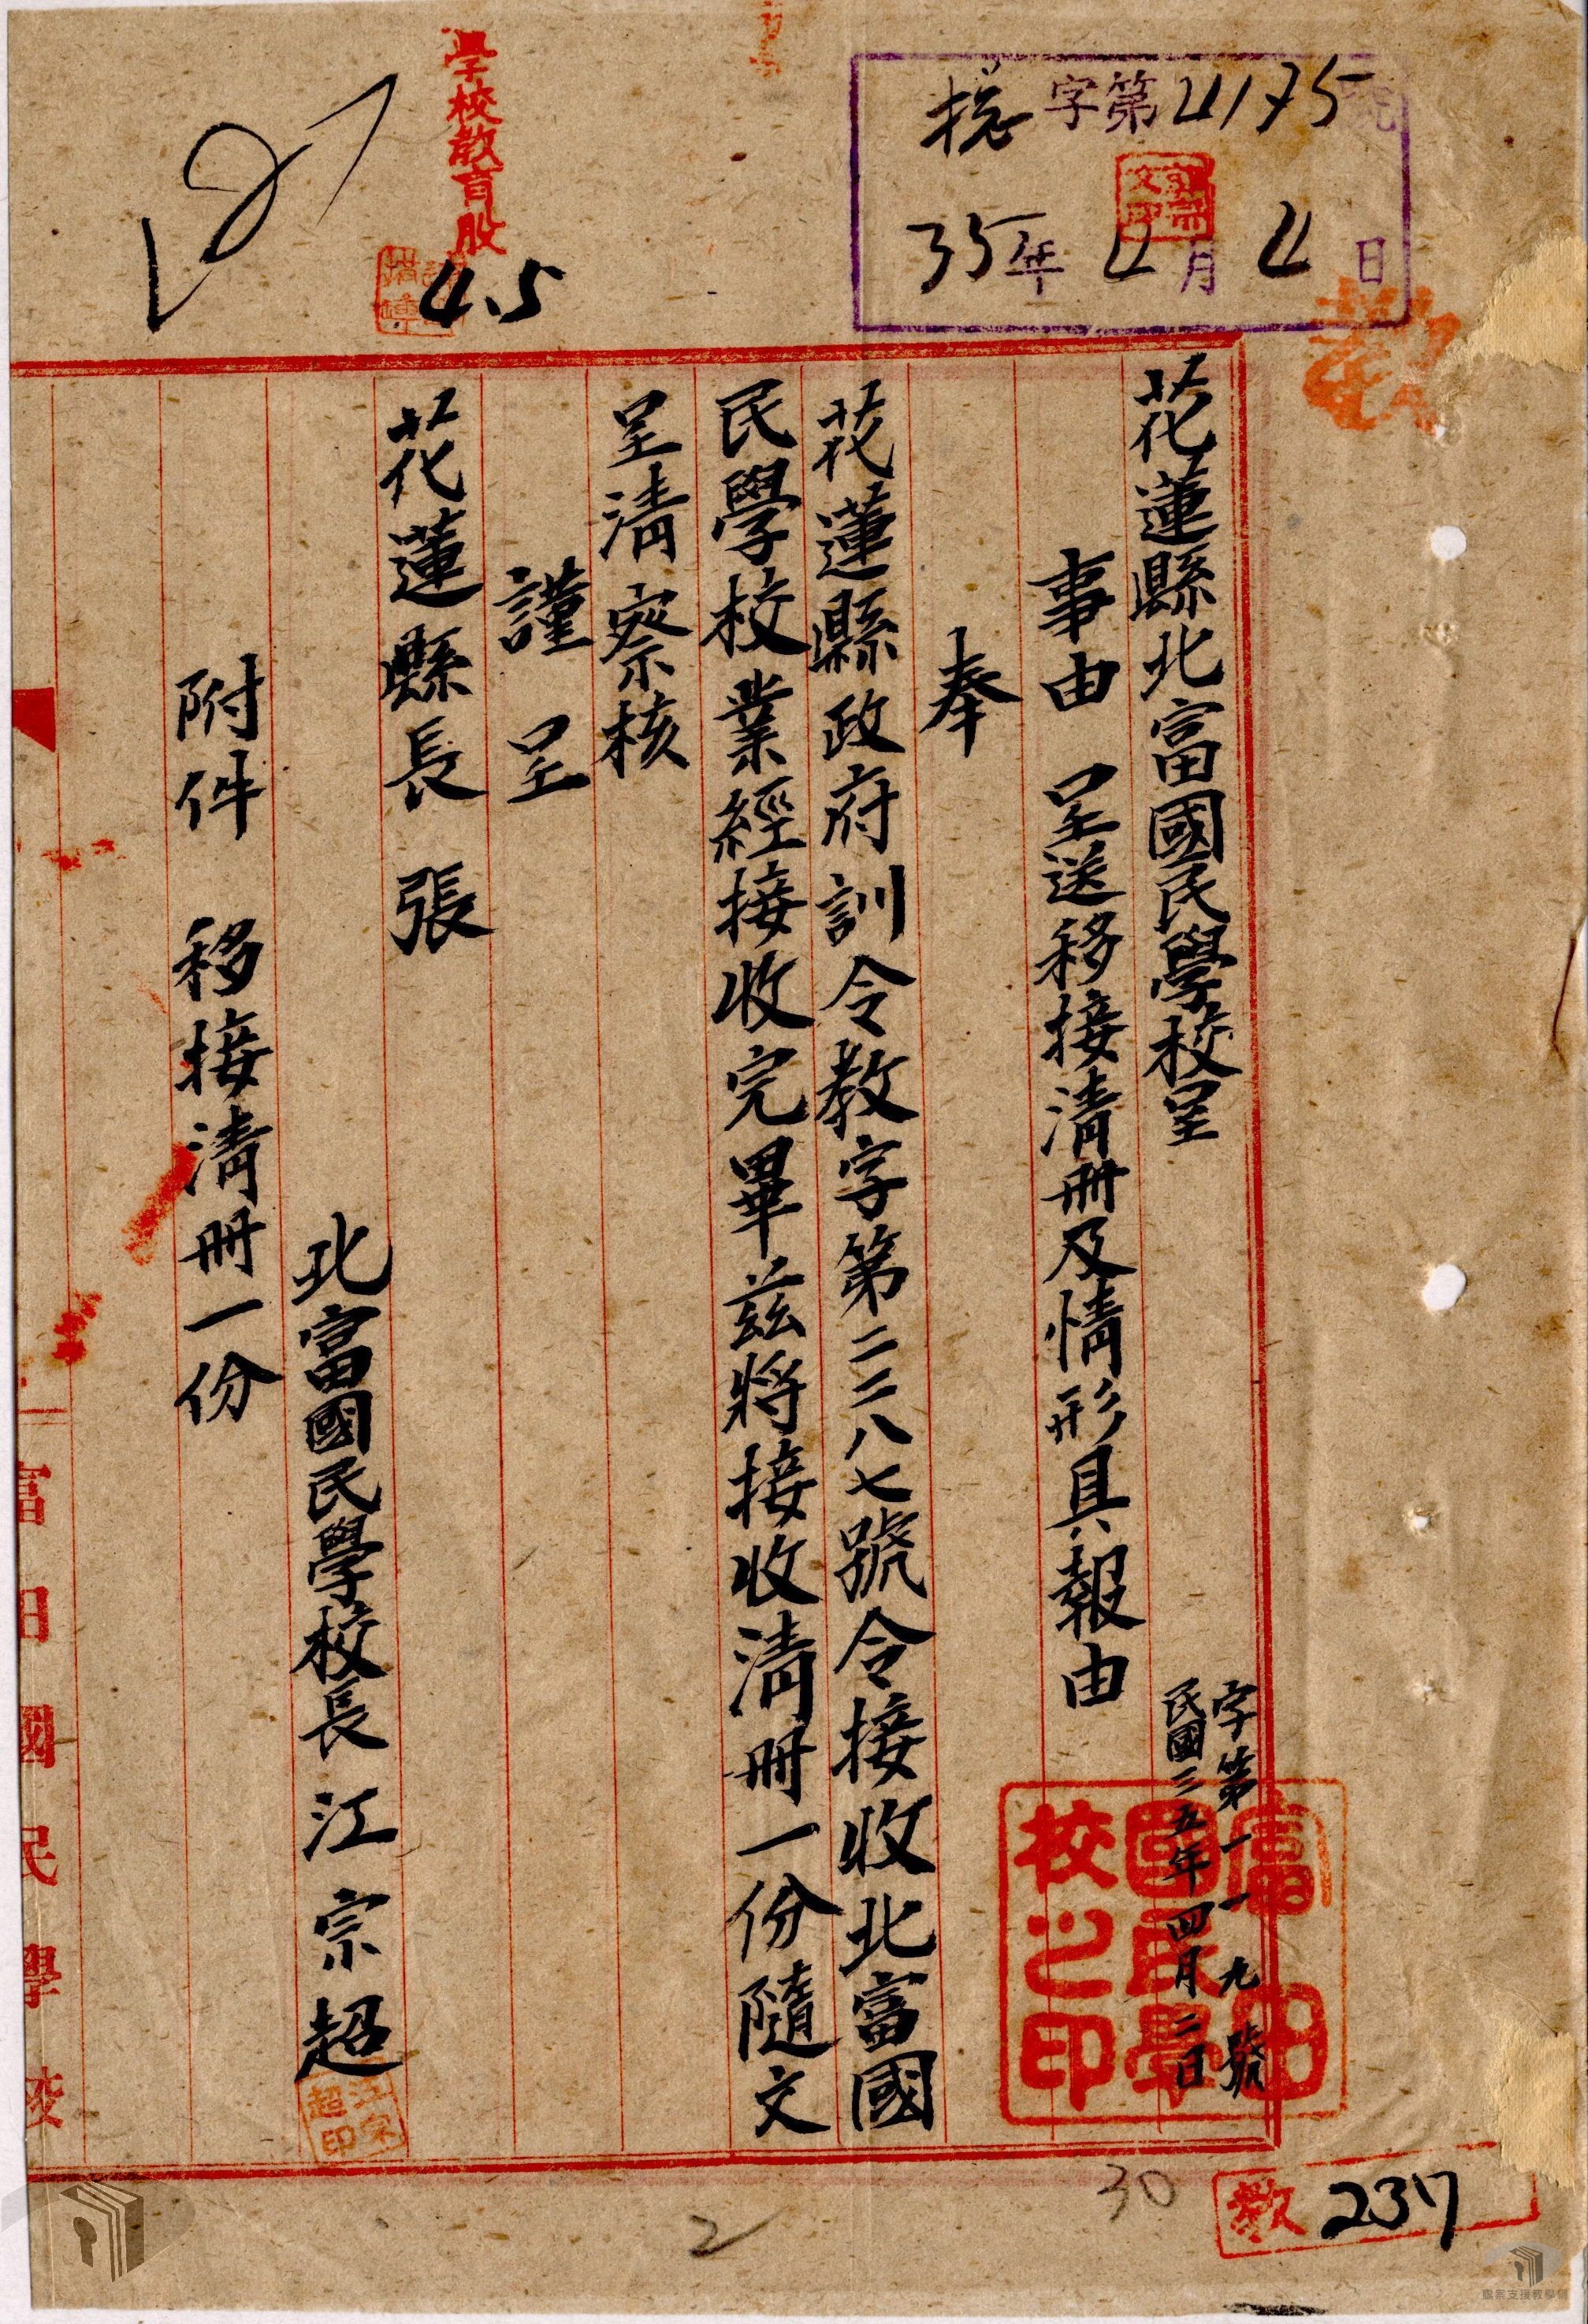 總字第4175號
35年4月4日
學校教育股
4.5
教
花蓮縣北富國民學校呈
字第一一九號
民國三五年四月二日
事由 呈送移接清冊及情形具報由
奉
花蓮縣政府訓令教字第二二八七號令接收北富國
民學校業經接收完畢茲將接收清冊一份隨文
呈清察核
謹呈
花蓮縣長 張
北富國民學校長江宗超
江宗超印
附件 移接清冊一份
富田國民學校之印
富田國民學校
教237
30
2
檔案支援教學網